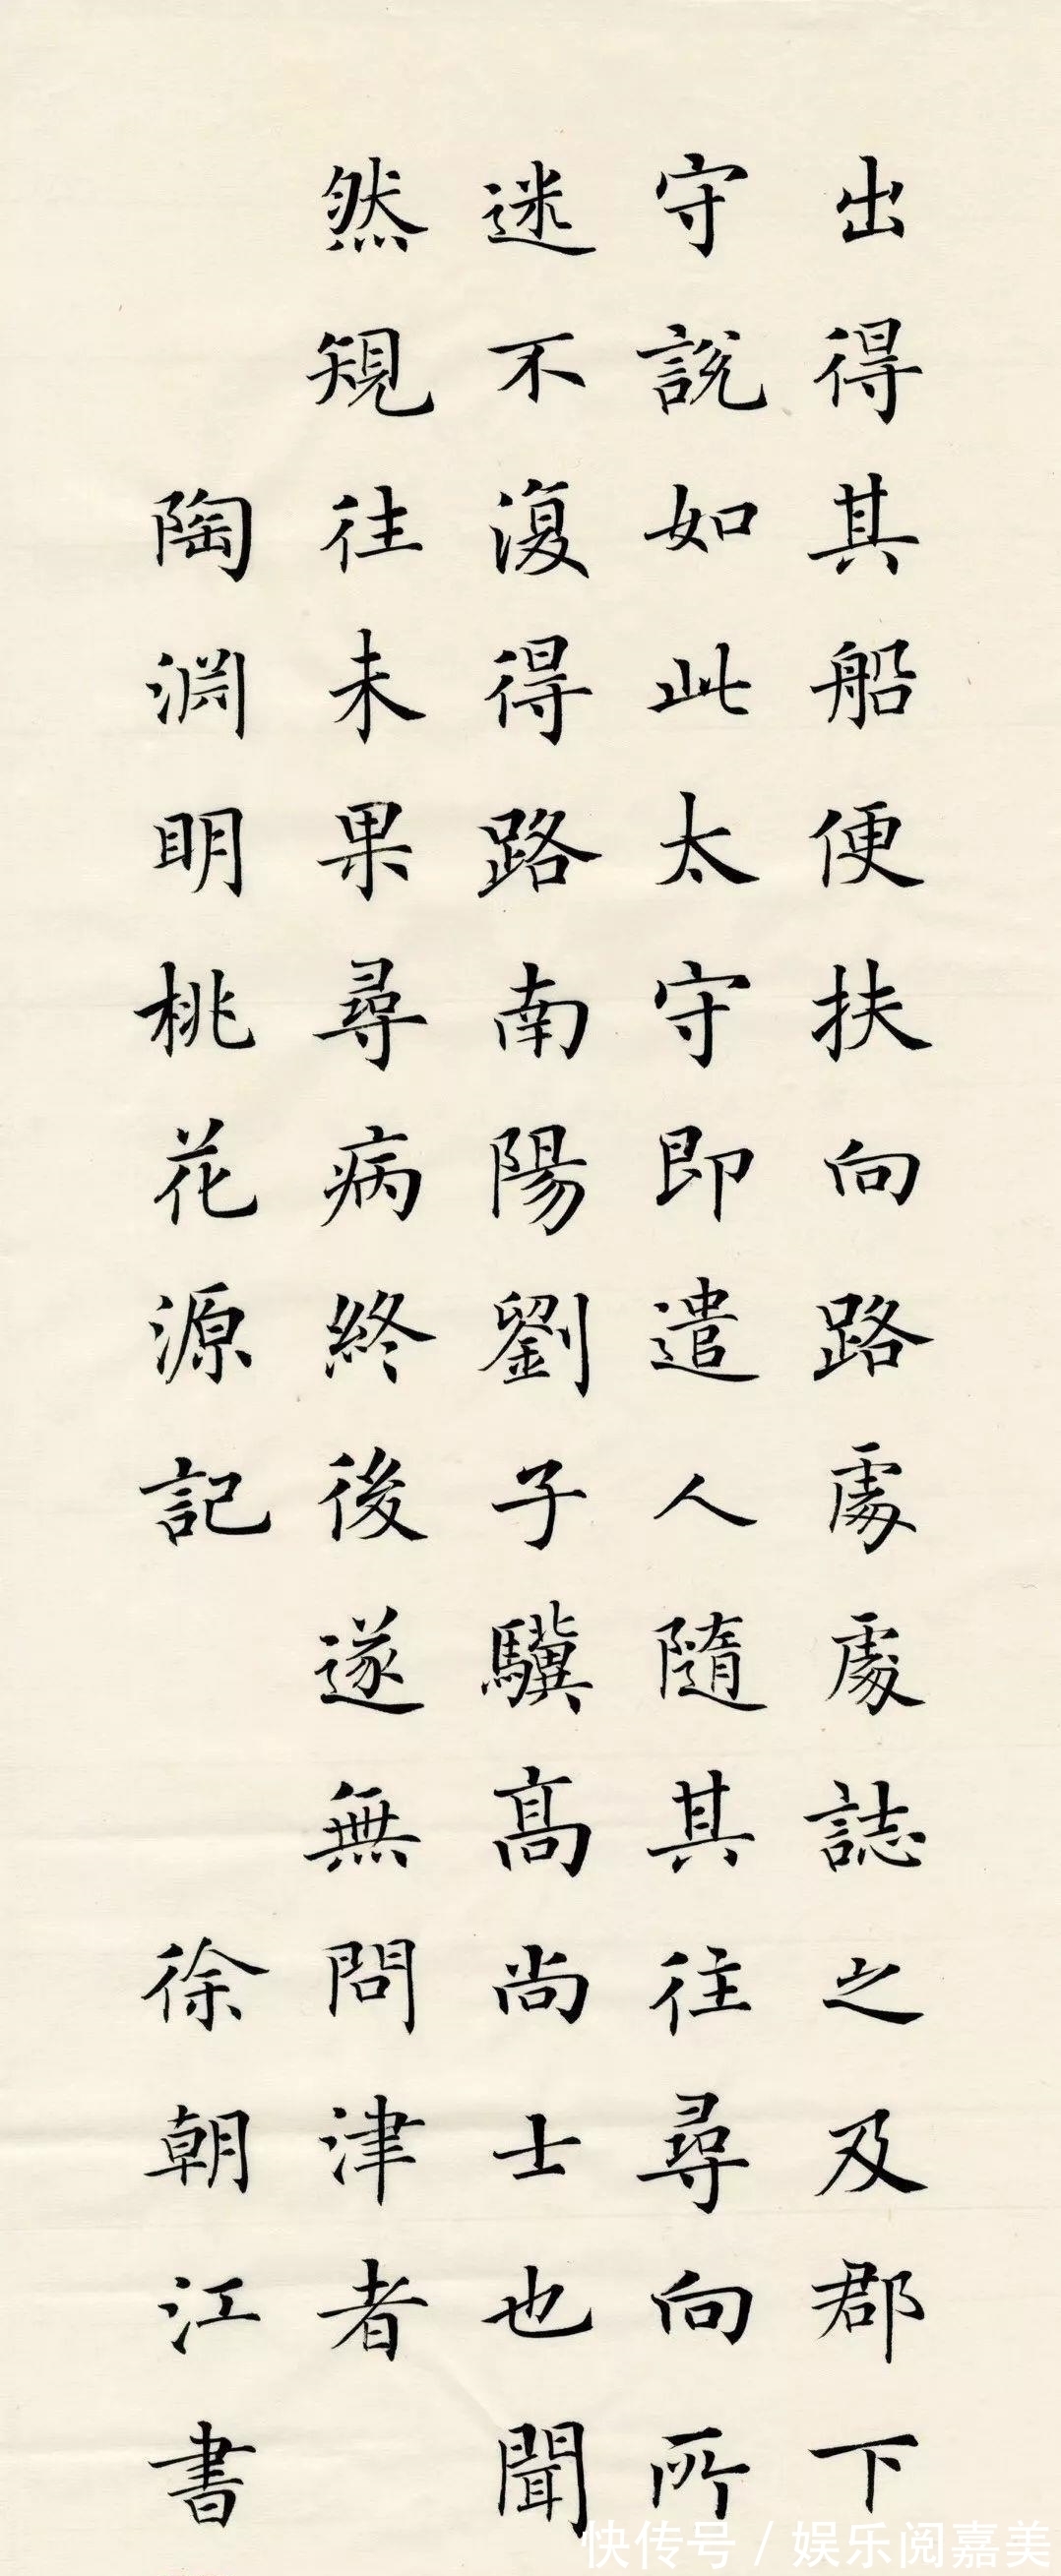 出得其船便扶向路處處誌之及郡下
守說如此太守即遣人隨其往尋向所
迷不復得路南陽劉子驥髙尚士也聞
然䂓往未果尋病終後遂無問津者
陶淵眀桃花源記
徐朝江書
快传号 / 娱乐阅嘉美